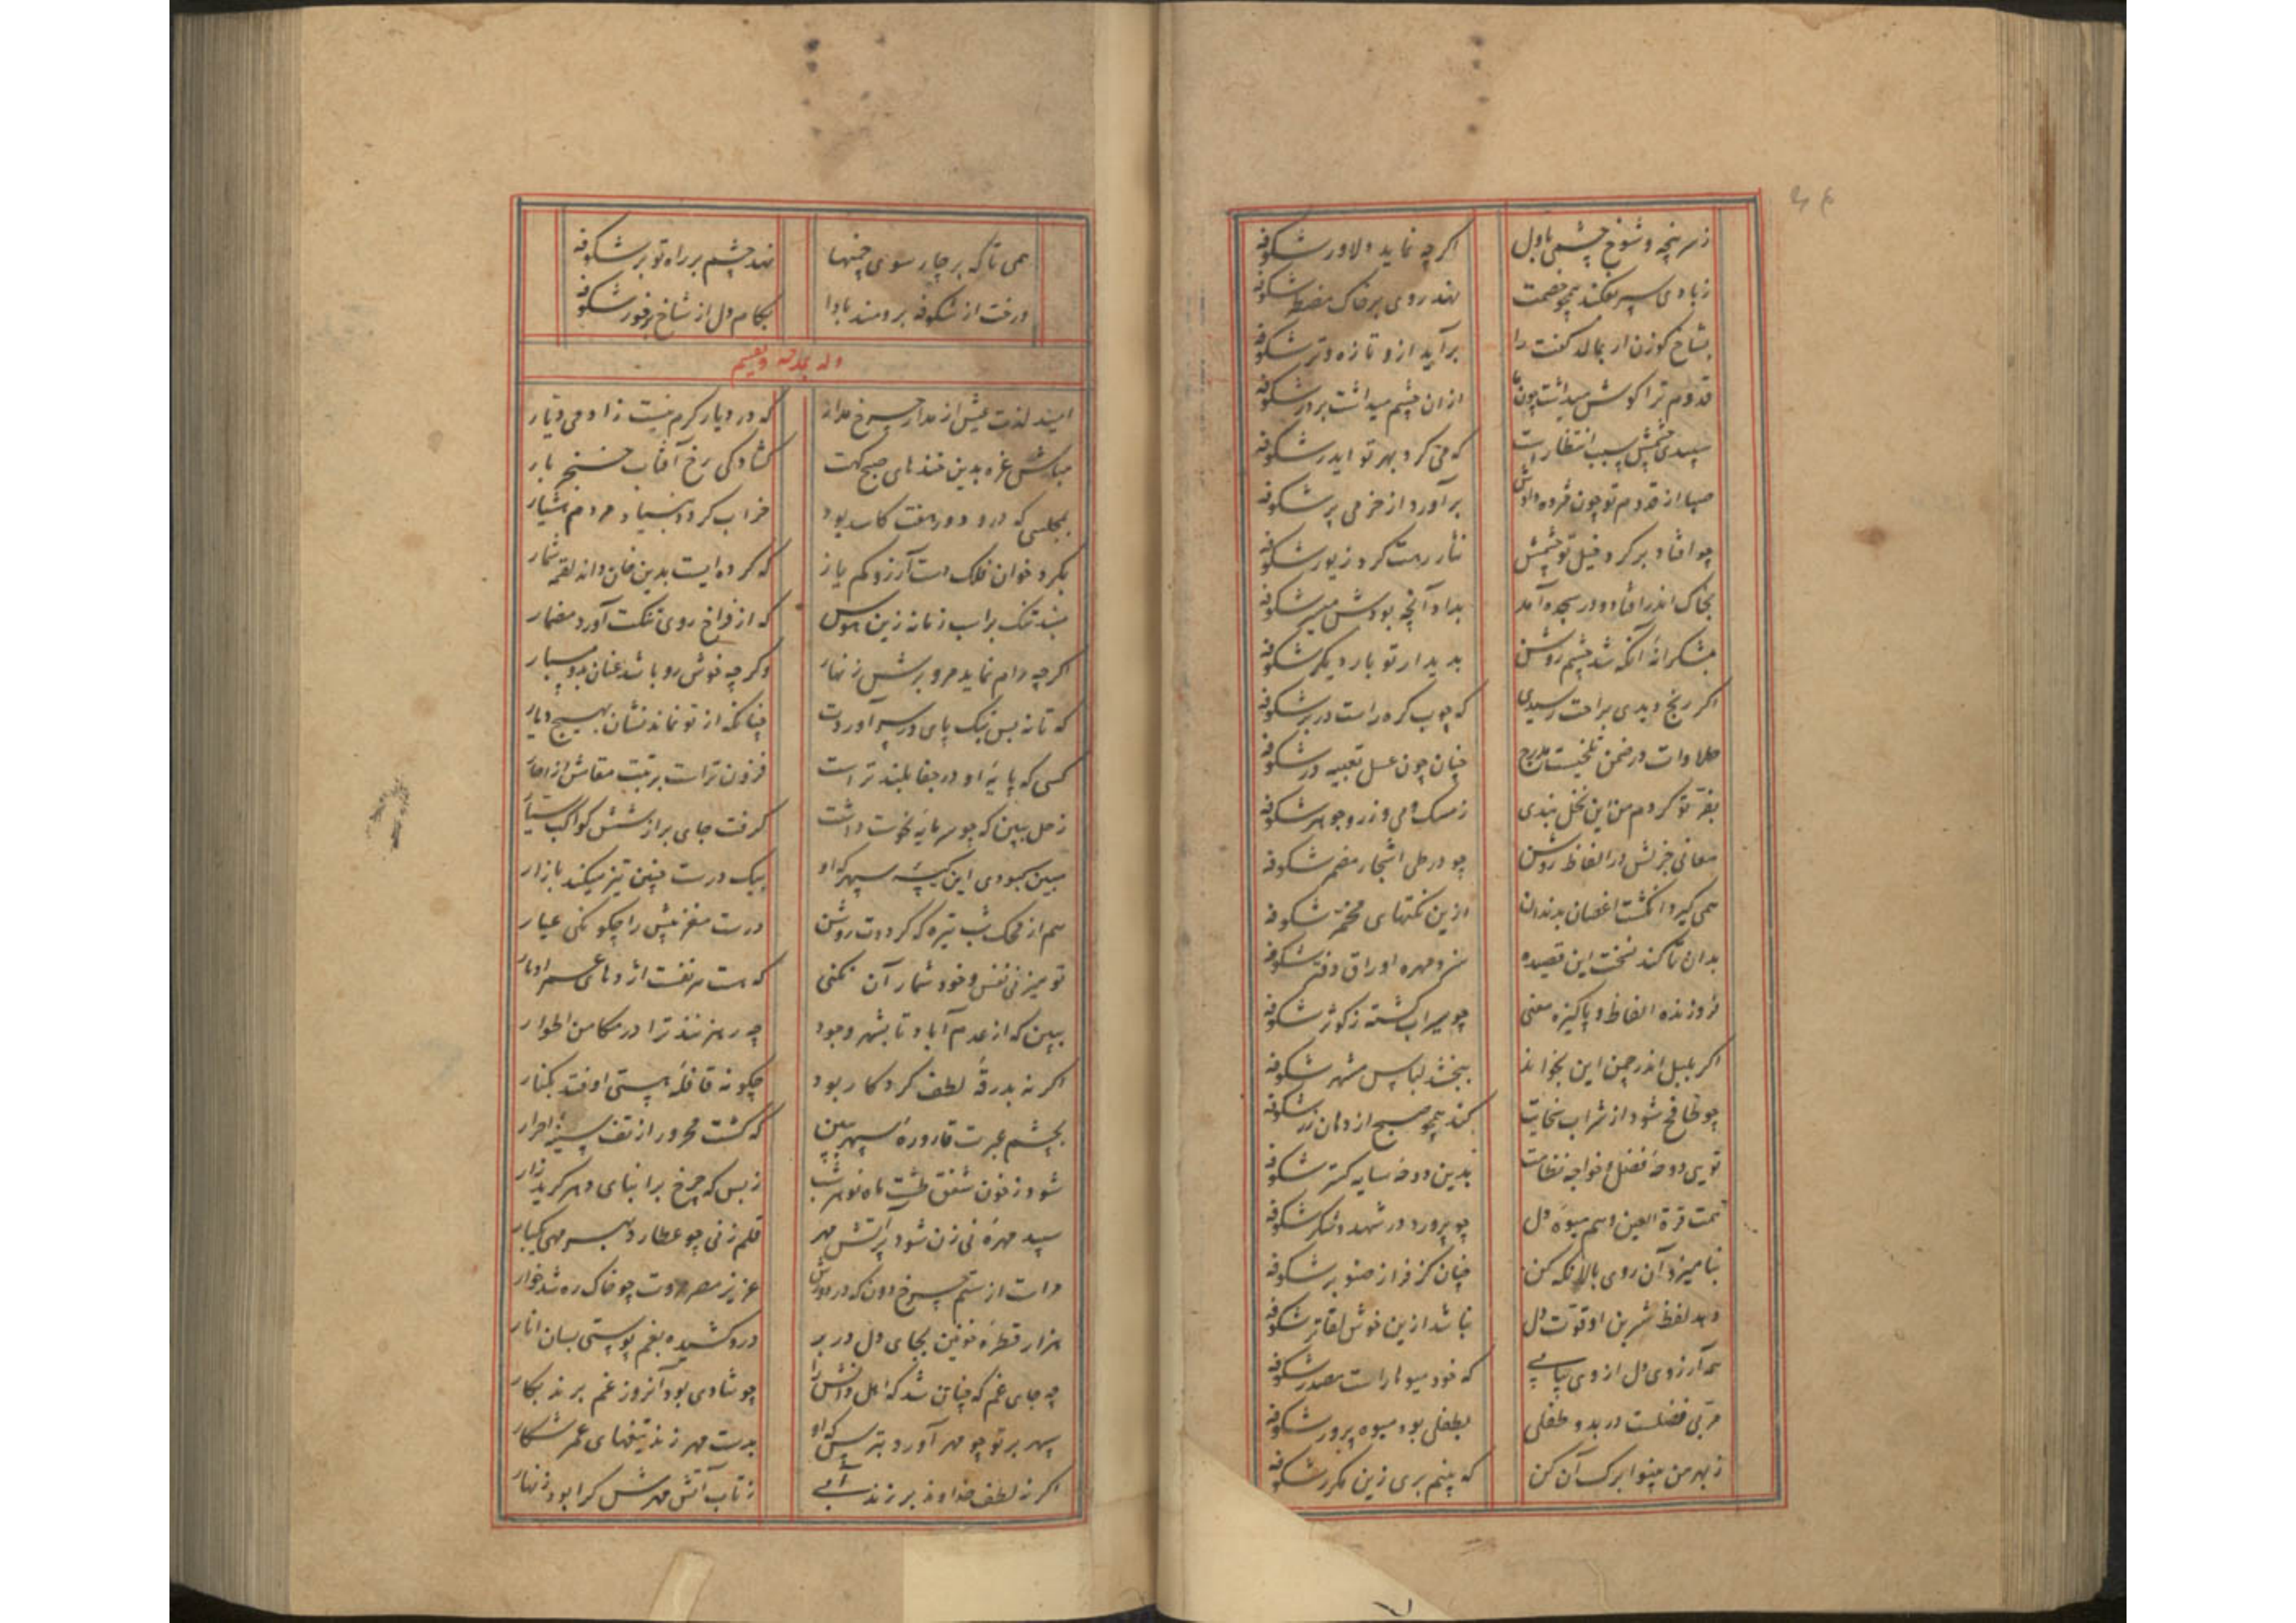 ز سرپنجه و شوخ چشمی باول اگرچه نماید دلاور شکوفه
ز بادی سپر بفکند همچو خصمت نهد روی بر خاک مضطر شکوفه
بشاخ گوزن ار بمالد کفت را برآید ازو تازه و تر شکوفه
قدوم ترا گوش میداشت چون از آن چشم میداشت بر در شکوفه
سپیدی چشمش سبب انتظار است که می‌کرد بهر تو ایدر شکوفه
صبا از قدوم تو چون مژده دادش برآورد از خرمی پر شکوفه
چو افتاد بر گرد خیل تو چشمش نثار رهت کرد زیور شکوفه
بخاک اندر افتاد و در سجده آمد بداد آنچه بودش میسر شکوفه
بشکرانه آنکه شد چشم روشن بدیدار تو بار دیگر شکوفه
اگر رنج دیدی براحت رسیدی که چوب گره راست در بر شکوفه
حلاوات در ضمن تلخیست مدرج چنان چون عسل تعبیه در شکوفه
بفر تو کردم من این نخل بندی ز مشک و می و زر و جوهر شکوفه
معانی جزلش در الفاظ روشن چو در طی اشجار مضمر شکوفه
همی گیرد انگشت اغصان بدندان ازین نکتهای مخمر شکوفه
بدان تا کند نسخت این قصیده مهره اوراق دفتر شکوفه
فروزنده الفاظ و پاکیزه معنی چو سیراب گشته ز کوثر شکوفه
اگر بلبل اندر چمن این بخواند ببخشد لباس مشهر شکوفه
چو طافح شود از شراب سخایت کند همچو صبح از دهان زر شکوفه
تویی دوحهٔ فضل و خواجه نظامت بدین دوحه سایه گستر شکوفه
تمت قرة العین و هم میوهٔ دل چو پرورد در شهد و شکر شکوفه
بنامیزد آن روی بالا نگه کن چنان کز فراز صنوبر شکوفه
دهد لفظ شیرین او قوت دل نباشد ازین خوش لقاتر شکوفه
همه آرزوی دل از وی بیابی که خود میوها راست مصدر شکوفه
مربی فضلست در بدو طفلی بطفلی بود میوه پرور شکوفه
ز بهر من بینوا برگ آن کن که بینم بری زین مکرر شکوفه
همی تا که بر چار سوی چمنها نهد چشم بر راه تو بر شکوفه
درخت از شکوفه برومند بادا بکام دل از شاخ برخور شکوفه
وله یمدحه
امید لذت عیش از مدار چرخ مدار که در دیار کرم نیست زادمی دیار
مباش غره بدین خندهای صبح کت گشادگی رخ آفتاب خنجر بار
بمجلسی که درو دور هفت کاسه بود خراب گردد بنیاد مردم هشیار
بگرد خوان فلک دست آرزو کم یاز که گرده ایست بدین خان و انه لقمه شمار
مبند تنگ بر اسب زمانه زین هوس که از فراخ روی تنگت آورد مضمار
اگرچه رام نماید مرو برش زنهار وگرچه خوش رو باشد عنان بدو مسپار
که تا نه بس تنگ پای در سر آوردت چنانکه از تو نماند نشان بهیچ دیار
کسی که پایهٔ او در جفا بلندتر است فزون ترست برتبت مقامش از اخیار
زحل ببین که چو سرمایهٔ نحوست داشت گرفت جای بر از شش کواکب سیار
مبین کبودی این کیسهٔ سپهر که او بیک درست چنین تیز میکند بازار
هم از محک شب تیره که گردت روشن درست مغربیش را چگونگی عیار
تو میزنی نفس و خود شمار آن نکنی که هست هر نفست اژدهای عمر اوبار
ببین که از عدم آباد تا بشهر وجود چه رهزنند ترا در مکامن اطوار
اگر نه بدرقهٔ لطف کردگار بود چگونه قافلهٔ هستی اوفتد بکنار
بچشم عبرت قارورهٔ سپهر ببین که گشت محرور از تف سینهٔ احرار
شود ز خون شفق طشت ماه نو هر شب ز بس که چرخ بر ابنای دهر گرید زار
سپید مهره نی زن شود بر آتش مهر قلم زنی چو عطارد بهر مهی یکبار
دلت از ستم چرخ دون که در دورش عزیز مصر مروت چو خاک ره شد خوار
هزار قطرهٔ خونین بجای دل در بر درو کشیده بغم پوستی بسان انار
چه جای غم که چنان شد که اهل دانش را چو شادی بود آنروز غم برند بکار
سپهر بر تو چو مهر آورد بترس که او بدست مهر زند تیغهای عمر شکار
اگر نه لطف خداوند بر زند آبی ز تاب آتش مهرش کرا بود زنهار